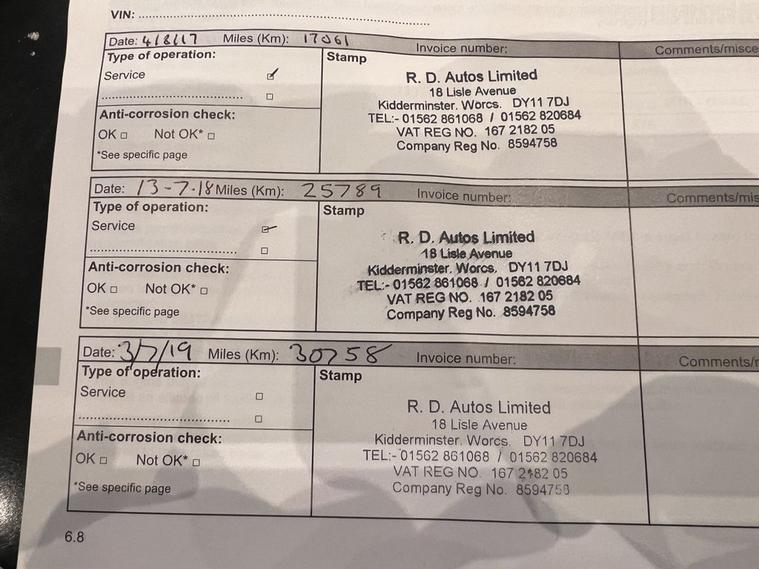 VIN: ................................................................
Date: 4/8/17 Miles (Km): 17061 Invoice number: Comments/misce
Type of operation: Stamp
Service
................................
Anti-corrosion check:
OK □ Not OK* □
*See specific page
R. D. Autos Limited
18 Lisle Avenue
Kidderminster. Worcs. DY11 7DJ
TEL:- 01562 861068 / 01562 820684
VAT REG NO. 167 2182 05
Company Reg No. 8594758
Date: 13-7-18 Miles (Km): 25789 Invoice number: Comments/mis
Type of operation: Stamp
Service
................................
Anti-corrosion check:
OK □ Not OK* □
*See specific page
R. D. Autos Limited
18 Lisle Avenue
Kidderminster. Worcs. DY11 7DJ
TEL:- 01562 861068 / 01562 820684
VAT REG NO. 167 2182 05
Company Reg No. 8594758
Date: 3/7/19 Miles (Km): 30758 Invoice number: Comments/
Type of operation: Stamp
Service □
................................ □
Anti-corrosion check:
OK □ Not OK* □
*See specific page
R. D. Autos Limited
18 Lisle Avenue
Kidderminster. Worcs. DY11 7DJ
TEL:- 01562 861068 / 01562 820684
VAT REG NO. 167 2182 05
Company Reg No. 8594758
6.8